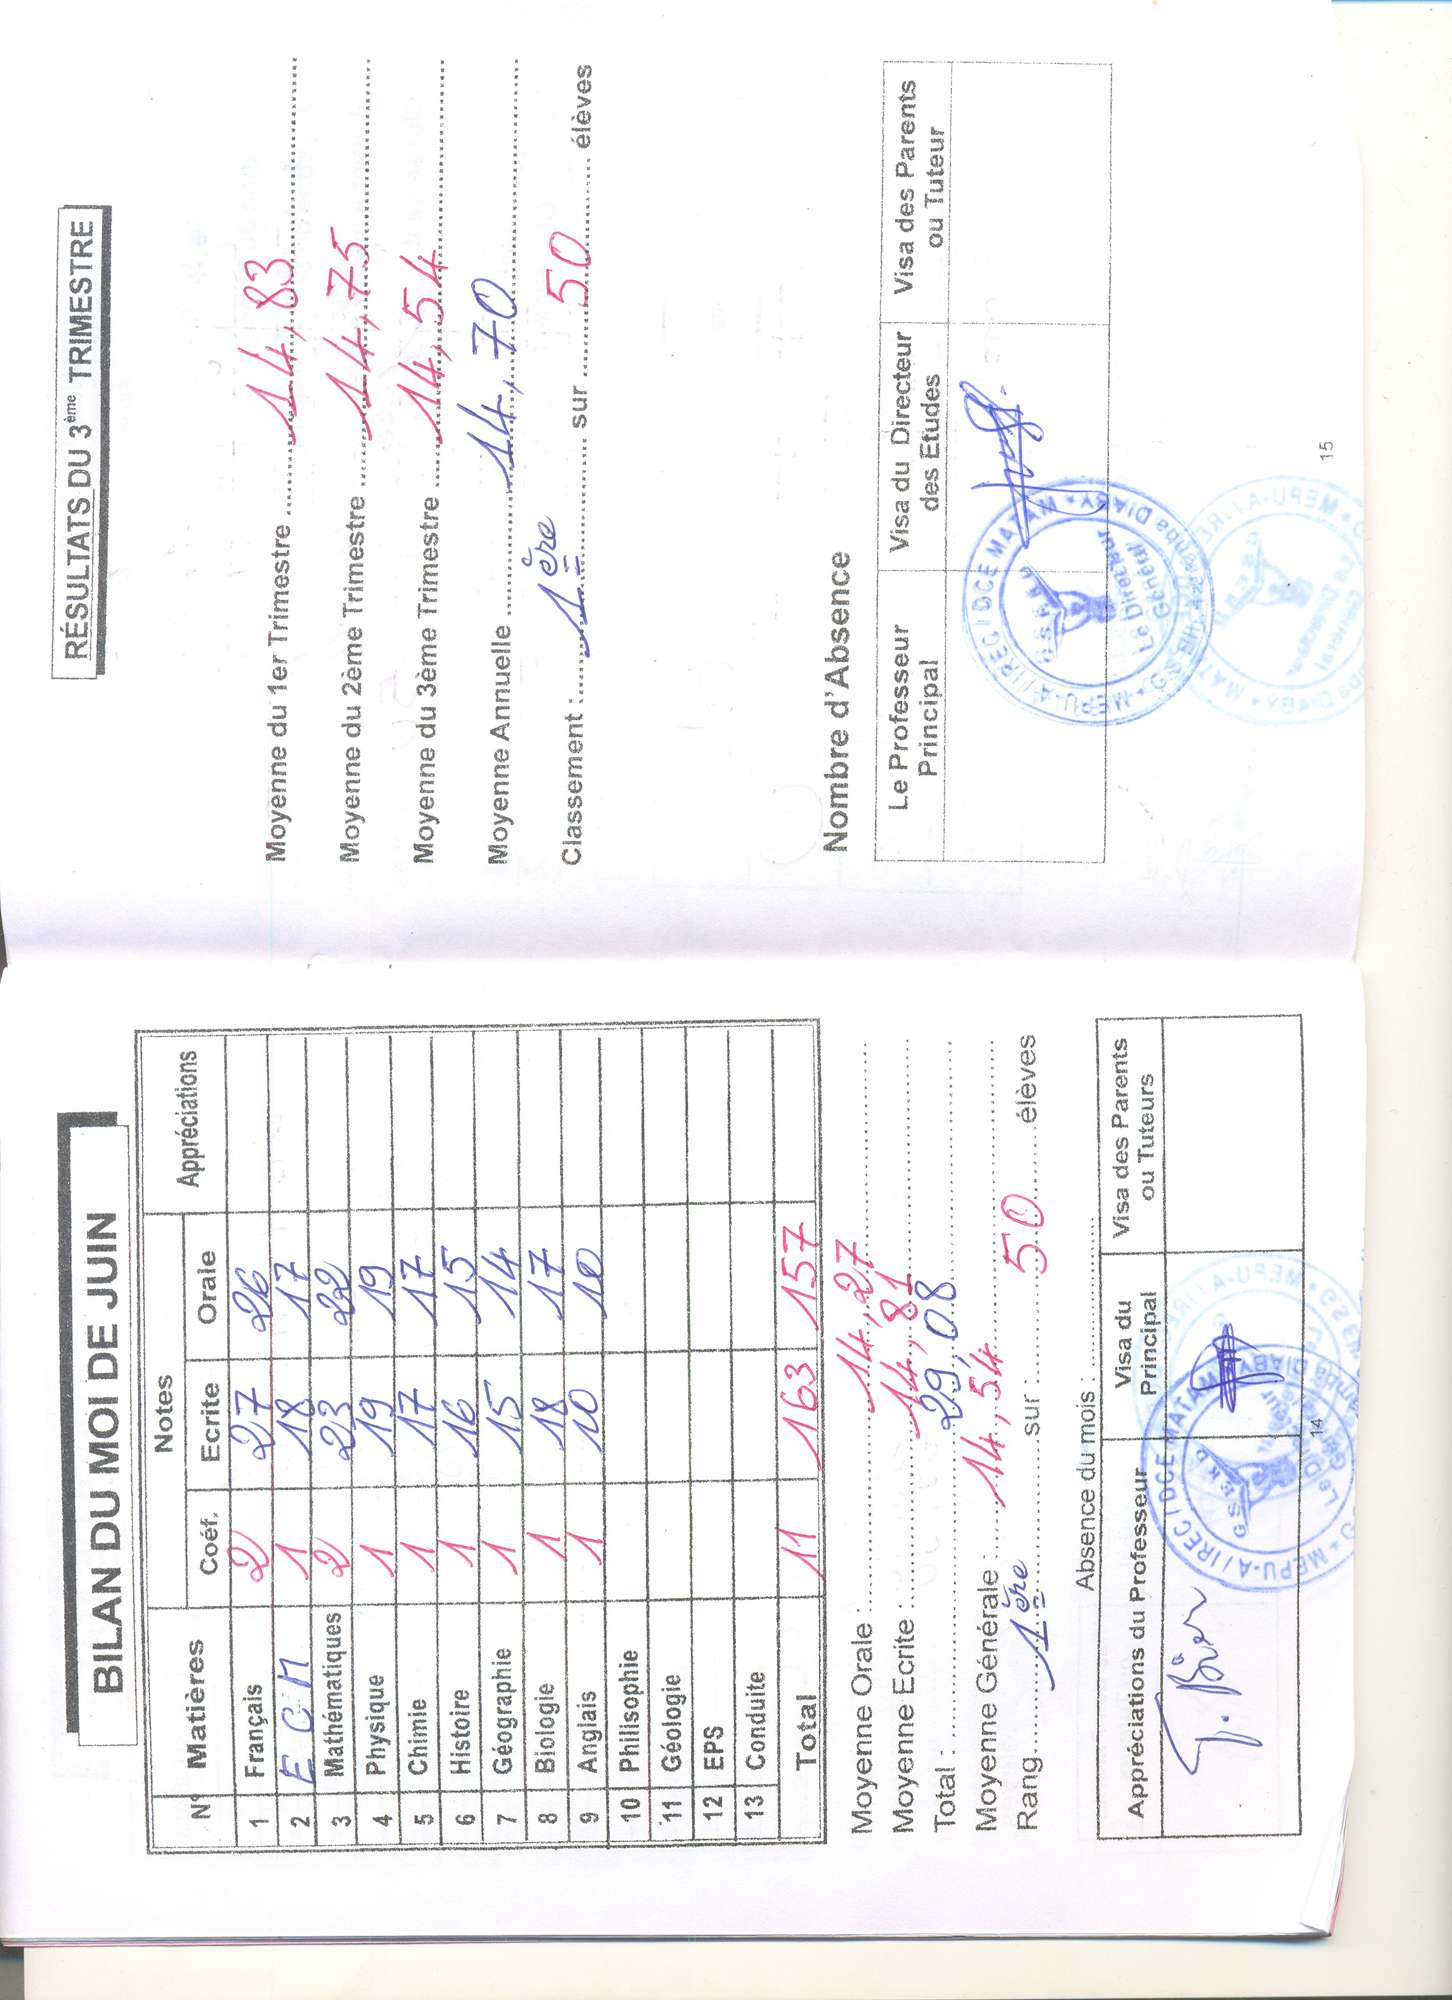 BILAN DU MOI DE JUIN
N° Matières Notes Appréciations
Coéf. Ecrite Orale
1 Français 2 27 26
2 E C M 1 18 17
3 Mathématiques 2 23 22
4 Physique 1 19 19
5 Chimie 1 17 17
6 Histoire 1 16 15
7 Géographie 1 15 14
8 Biologie 1 18 17
9 Anglais 1 10 10
10 Philisophie
11 Géologie
12 EPS
13 Conduite
Total 11 163 157
Moyenne Orale : 14,27
Moyenne Ecrite : 14,81
Total : 29,08
Moyenne Générale : 14,54
Rang 1ère sur : 50 élèves
Absence du mois :
Appréciations du Professeur Visa du Principal Visa des Parents ou Tuteurs
T. Bien
14
RÉSULTATS DU 3ème TRIMESTRE
Moyenne du 1er Trimestre 14,83
Moyenne du 2ème Trimestre 14,75
Moyenne du 3ème Trimestre 14,54
Moyenne Annuelle 14,70
Classement : 1ère sur 50 élèves
Nombre d'Absence
Le Professeur Principal Visa du Directeur des Etudes Visa des Parents ou Tuteur
MEPU-A / IREC / DCE MATAM
GSEKD
Le Directeur
Général
15